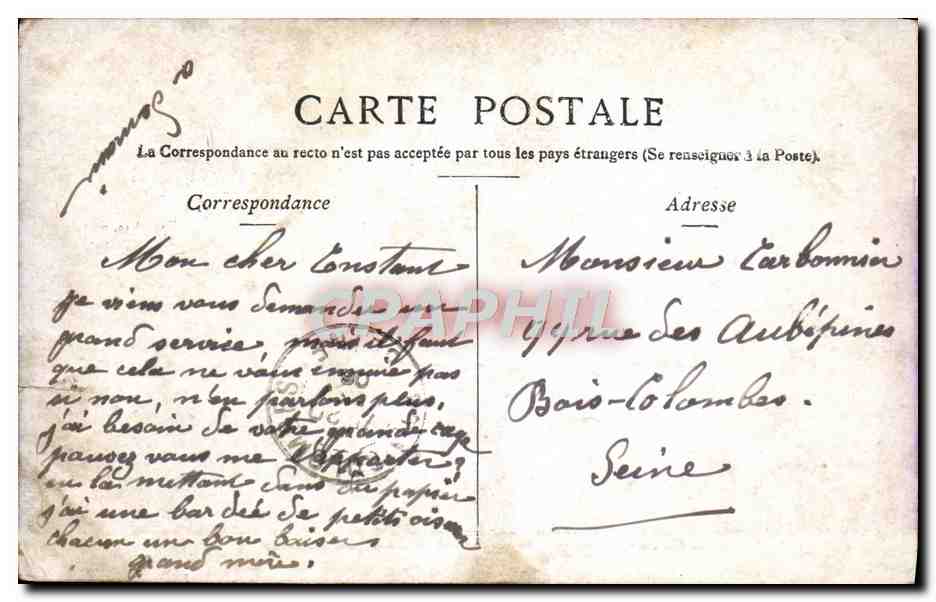 CARTE POSTALE
La Correspondance au recto n'est pas acceptée par tous les pays étrangers (Se renseigner à la Poste).
Correspondance
Mon cher Constant
je viens vous demander un
grand service mais il faut
que cela ne vous ennuie pas
si non, n'en parlons plus,
j'ai besoin de votre grande cage
pouvez vous me l'apporter?
en la mettant dans du papier
j'ai une bordée de petits oiseaux
chacun un bon baiser
grand mère.
Adresse
Monsieur Carbonnier
99 rue des Aubépines
Bois-Colombes.
Seine
CPAPHIL